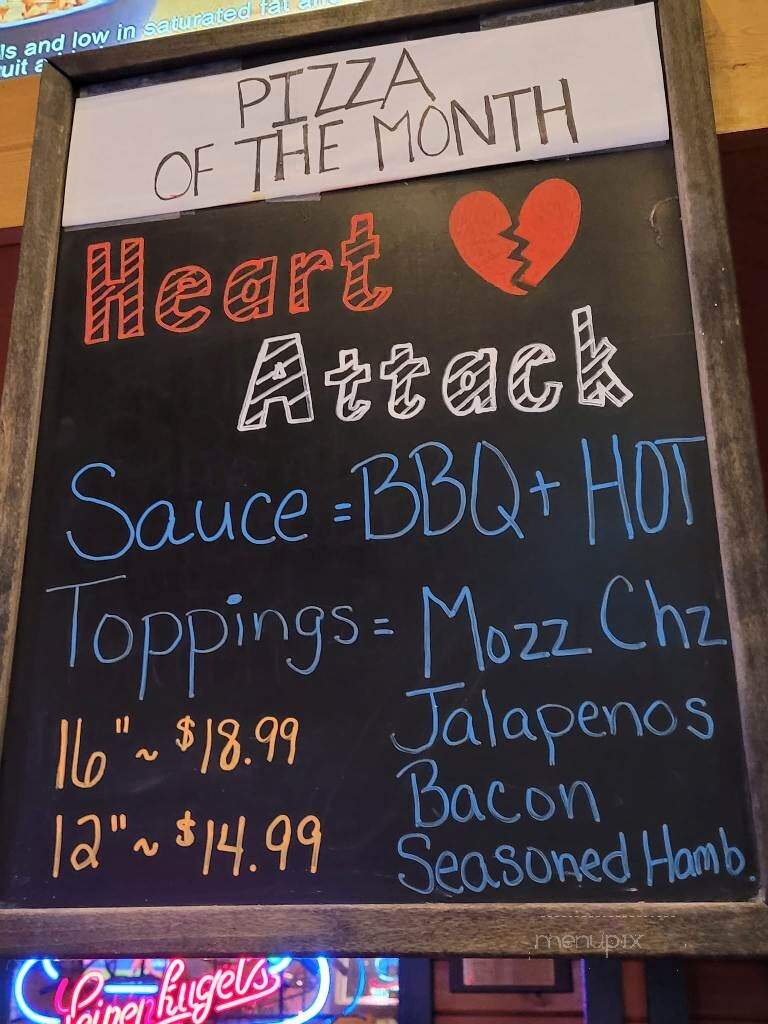 ls and low in saturated fat an
uit a
PIZZA
OF THE MONTH
Heart
Attack
Sauce = BBQ + HOT
Toppings = Mozz Chz
Jalapenos
Bacon
Seasoned Hamb.
16" ~ $18.99
12" ~ $14.99
menupix
Leinenkugel's